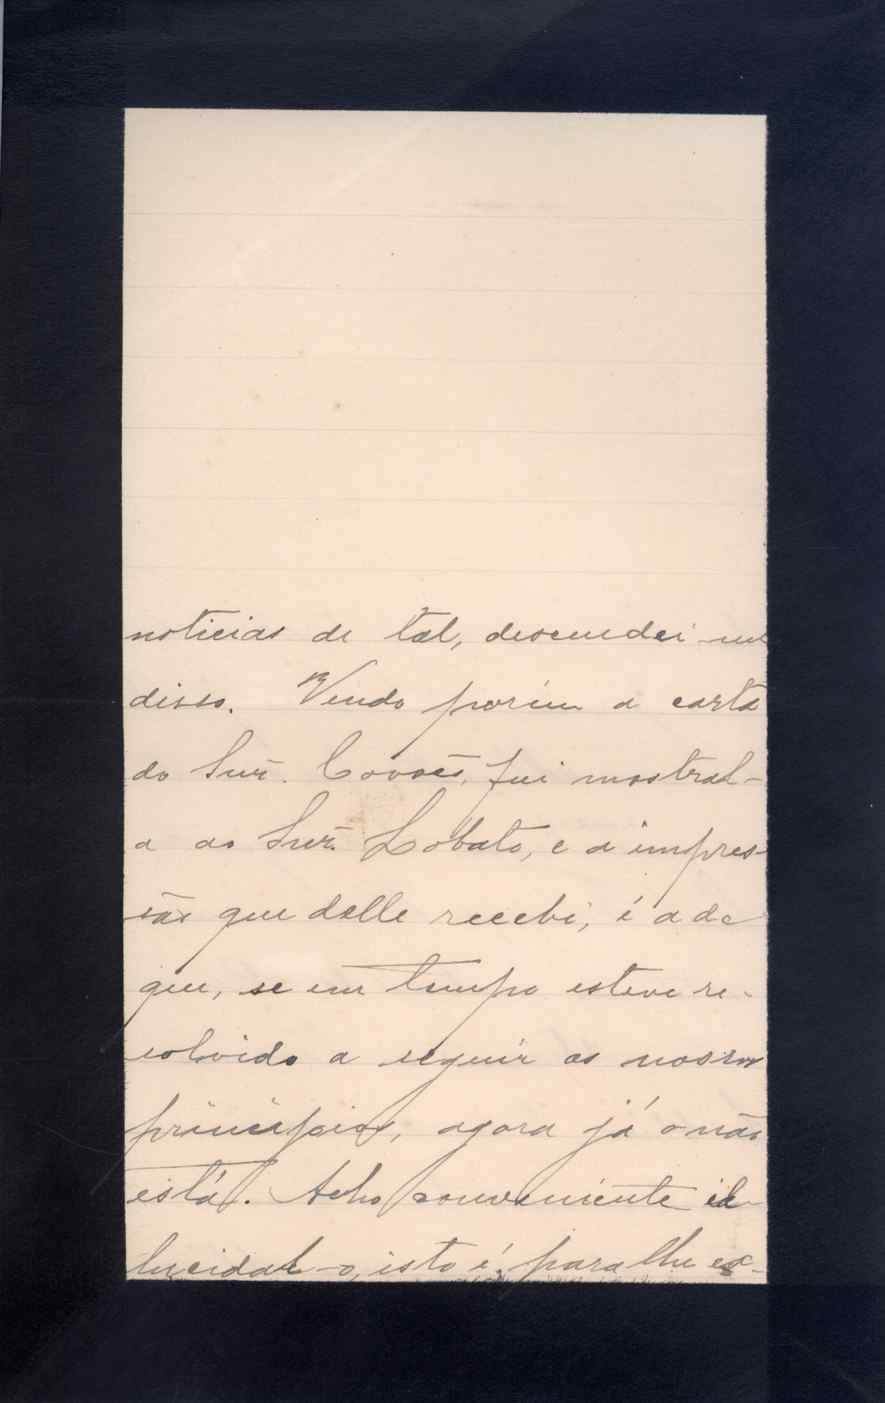 noticias de tal, descuidei-me
disso. Vendo porém a carta
do Snr. Covões, fui mostral-
a ao Snr. Lobato, e a impres-
são que delle recebi, é a de
que, se em tempo esteve re-
solvido a seguir os nossos
principios, agora já o não
está. Acho conveniente el
lucidal-o, isto é, para lhe ex-